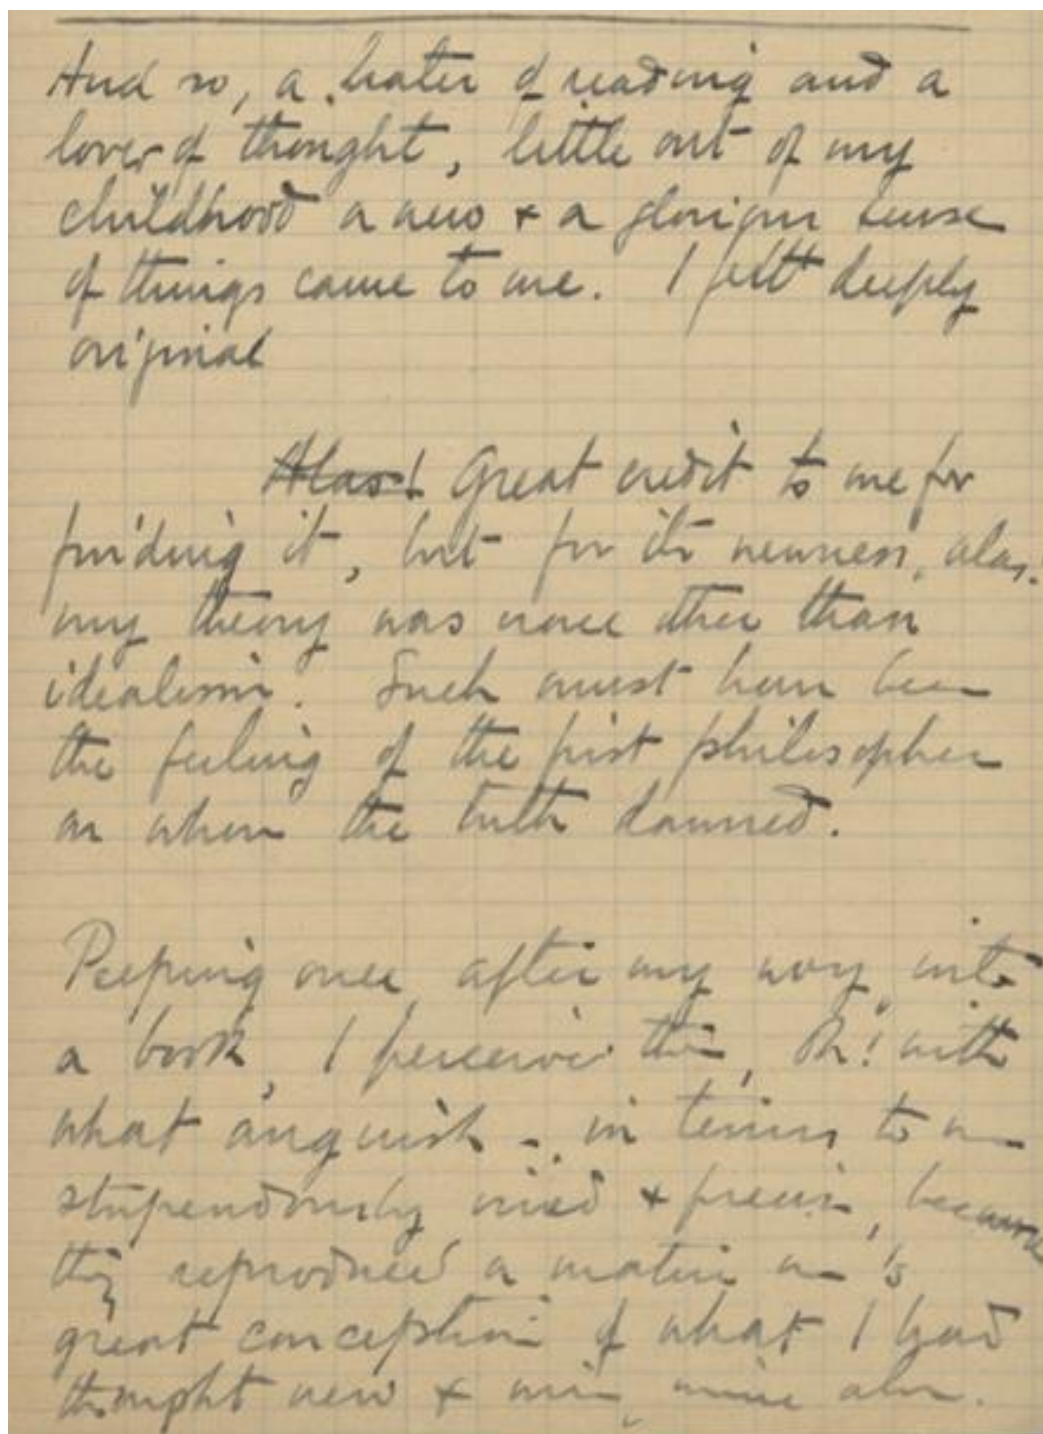 And so, a hater of reading and a
lover of thought, little out of my
childhood a new & a glorious sense
of things came to me. I felt deeply
original
Alas! Great credit to me for
finding it, but for its newness, alas!
my theory was none other than
idealism. Such must have been
the feeling of the first philosopher
on whom the truth dawned.
Peeping once, after my way, into
a book, I perceived this, Oh! with
what anguish - in terms to me
stupendously vivid & precise, because
they reproduced a mature man's
great conception of what I had
thought new & mine, mine alone.